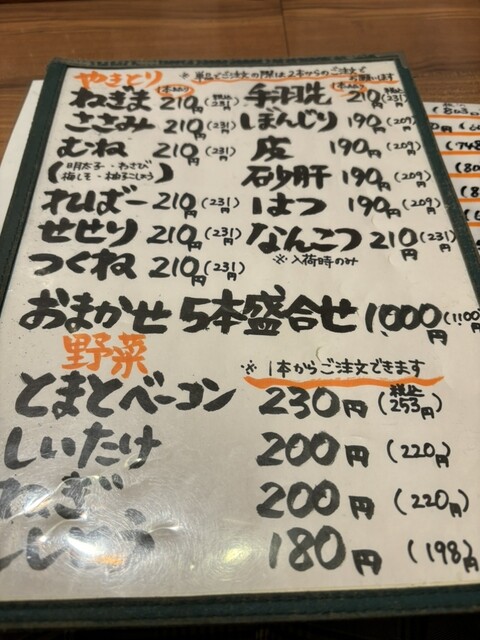 やきとり ※単品でご注文の際は2本からのご注文でお願います
ねぎま 1本 210円(税込231円) 手羽先 1本 210円(税込231円)
ささみ 210円(231円) ぼんじり 190円(209円)
むね 210円(231円) 皮 190円(209円)
(明太子・わさび 梅しそ・柚子こしょう) 砂肝 190円(209円)
ればー 210円(231円) はつ 190円(209円)
せせり 210円(231円) なんこつ 210円(231円)
つくね 210円(231円) ※入荷時のみ
おまかせ5本盛合せ 1000円(1100円)
野菜 ※1本からご注文できます
とまとベーコン 230円(税込253円)
しいたけ 200円(220円)
ねぎ 200円(220円)
180円(198円)